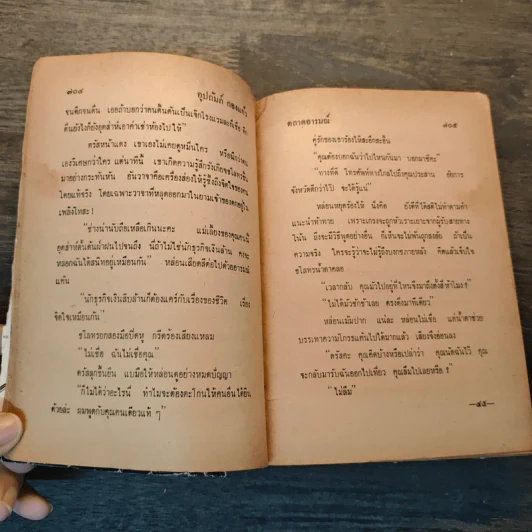 ๗๐๔
อุปถัมภ์ กองแก้ว
ชนตึกจนตื่น เธอถ้าบอกว่าคนตื่นดันเป็นเจ๊กโรงแรมละก้อเรื่อ
ดันยังไงก็ยังอุตส่าห์เอาค่าเช่าห้องไปให้"
ครัสหน้าแดง เขาเองไม่เคยดูหมิ่นใคร หรือนึกว่าตน
เองวิเศษกว่าใคร แต่นาทีนี้ เขาเกิดความรู้สึกรังเกียจชโลทรขึ้น
มาอย่างกระทันหัน อันวาจาคือเครื่องส่องให้รู้ซึ้งถึงจิตใจของคน
โดยแท้จริง โดยเฉพาะวาจาที่หลุดออกมาในยามเจ้าของตกอยู่ใน
เพลิงโทสะ !
"ช่างน่านับถือเหลือเกินนะคะ แม่เลี้ยงของคุณคนนี้
อุตส่าห์ดั้นด้นฝ่าฝนไปจนถึง นี่ถ้าไม่ใช่นักธุรกิจเงินล้าน คงจะ
หลอกฉันได้สนิทอยู่เหมือนกัน" หล่อนเสียดสีต่อไปด้วยอารมณ์
แค้น
"นักธุรกิจเงินสิบล้านก็ต้องแคร์กับเรื่องของชีวิต เรื่อง
จิตใจเหมือนกัน"
ชโลทรยกสองมือปิดหู กรีดร้องเสียงแหลม
"ไม่เชื่อ ฉันไม่เชื่อคุณ"
ครัสลุกขึ้นยืน แบมือให้หล่อนดูอย่างหมดปัญญา
"ก็ไม่ได้ว่าอะไรนี่ ทำไมจะต้องตะโกนให้คนอื่นได้ยิน
ด้วยล่ะ ผมพูดกับคุณคนเดียวแท้ ๆ"
ตลาดอารมณ์
๗๐๕
คู่รักของเขาร้องไห้สะอึกสะอื้น
"คุณต้องบอกฉันว่าไปไหนกันมา บอกมาซิคะ"
"ทางที่ดี โทรศัพท์ทางไกลไปถึงคุณประสาน อัยการ
จังหวัดดีกว่าไป๊ จะได้รู้แน่"
หล่อนหยุดร้องไห้ นิ่งคิด ยังดีที่ได้สติไม่ทำตามคำ
แนะนำท้าทาย เพราะเกรงจะถูกหัวเราะเยาะจากผู้รับสายทาง
โน้น ถึงจะมีวิธีพูดอย่างอื่น ก็เห็นจะไม่พ้นถูกสงสัย ถ้าเป็น
ความจริง ใครจะรู้ว่าจะไม่รู้ถึงบทชรภายหลัง คิดแล้วเจ็บใจ
ชโลทรน้ำตาคลอ
"เวลากลับ คุณมัวไปอยู่ที่ไหนจึงมาถึงตั้งห้าทุ่มล่ะ ?
"ไม่ได้มัวชักช้าเลย ตรงดิ่งมาทีเดียว"
หล่อนเม้มปาก แน่ละ หล่อนไม่เชื่อ แต่น้ำตาช่วย
บรรเทาความโกรธแค้นไปได้มากแล้ว เสียงจึงอ่อนลง
"ครัสคะ คุณคิดบ้างหรือเปล่าว่า คุณนัดฉันไว้ คุณ
จะกลับมารับฉันออกไปเที่ยว คุณลืมไปเลยหรือ ?
"ไม่ลืม"
—๔๕—